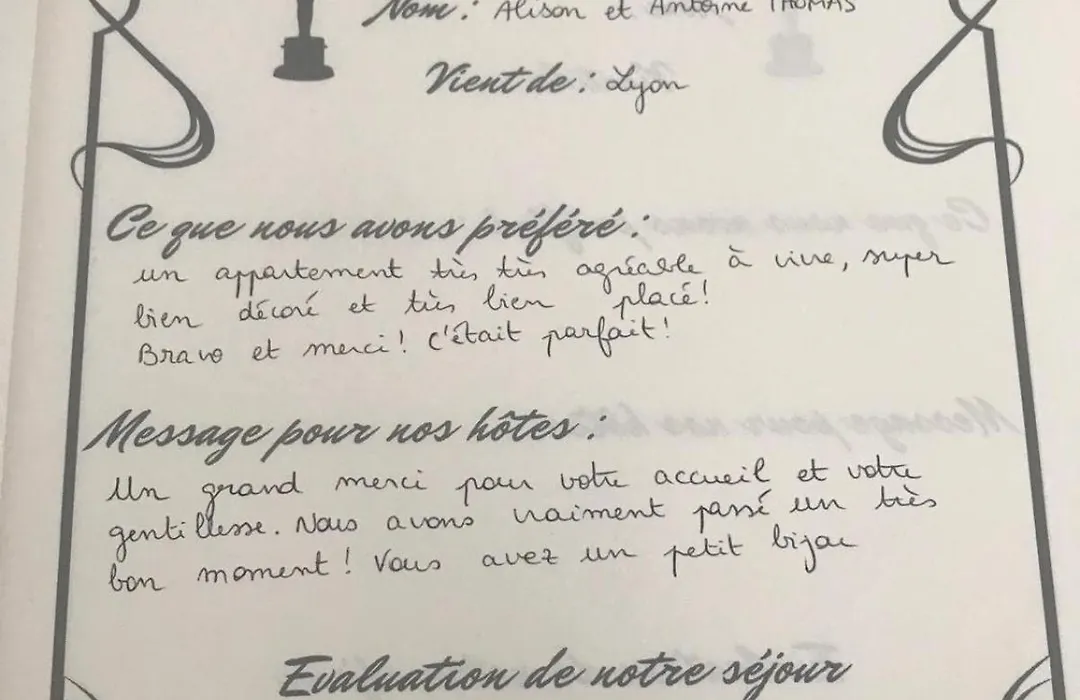 Nom : Alison et Antoine THOMAS
Vient de : Lyon
Ce que nous avons préféré :
un appartement très très agréable à vivre, super
bien décoré et très bien placé!
Bravo et merci! C'était parfait!
Message pour nos hôtes :
Un grand merci pour votre accueil et votre
gentillesse. Nous avons vraiment passé un très
bon moment! Vous avez un petit bijou
Evaluation de notre séjour